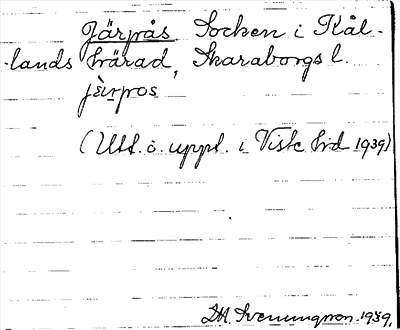 Järpås Socken i Kål-
-lands härad, Skaraborgs l.
jè̱rpos
(Utt. o. uppt. i Viste hrd 1939)
Sveningson. 1939.